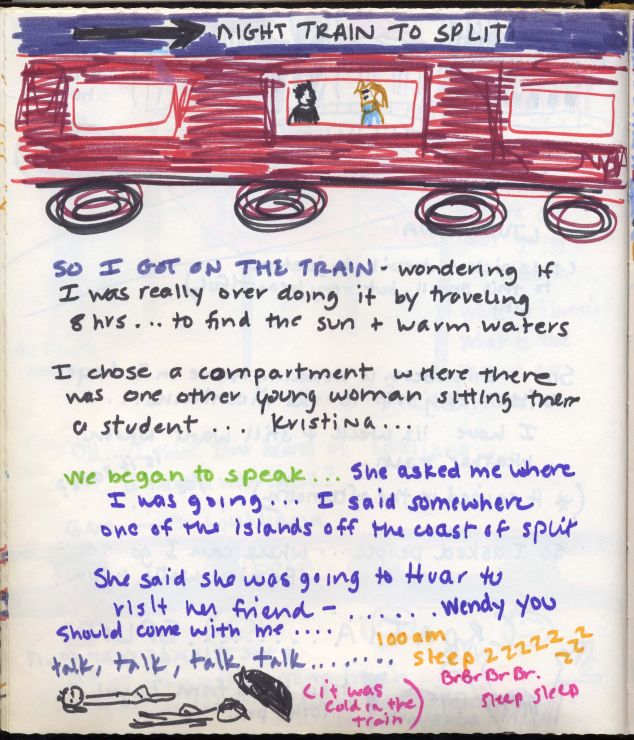 NIGHT TRAIN TO SPLIT
SO I GOT ON THE TRAIN - wondering if
I was really over doing it by traveling
8 hrs... to find the sun + warm waters
I chose a compartment where there
was one other young woman sitting there
a student ... Kristina...
We began to speak... She asked me where
I was going... I said somewhere
one of the islands off the coast of split
She said she was going to Hvar to
visit her friend - ...... Wendy you
should come with me ....
talk, talk, talk, talk........
100am
sleep zzzzzzzzz
BrBrBrBr.
(it was
cold in the
train)
sleep sleep